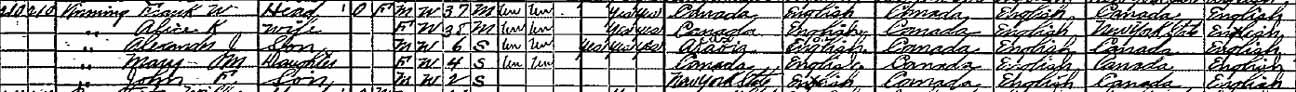 210 210 Frank W Head 1 O F M W 37 M Un Un Yes Yes Canada English Canada English Canada English
" Alice K Wife F W 38 M Un Un Yes Yes Canada English Canada English New York State English
" Alexander J Son M W 6 S Un Un Yes Yes Yes English Canada English Canada English
" Mary M Daughter F W 4 S Un Un Canada English Canada English Canada English
" John F Son M W 2 S New York State English Canada English Canada English